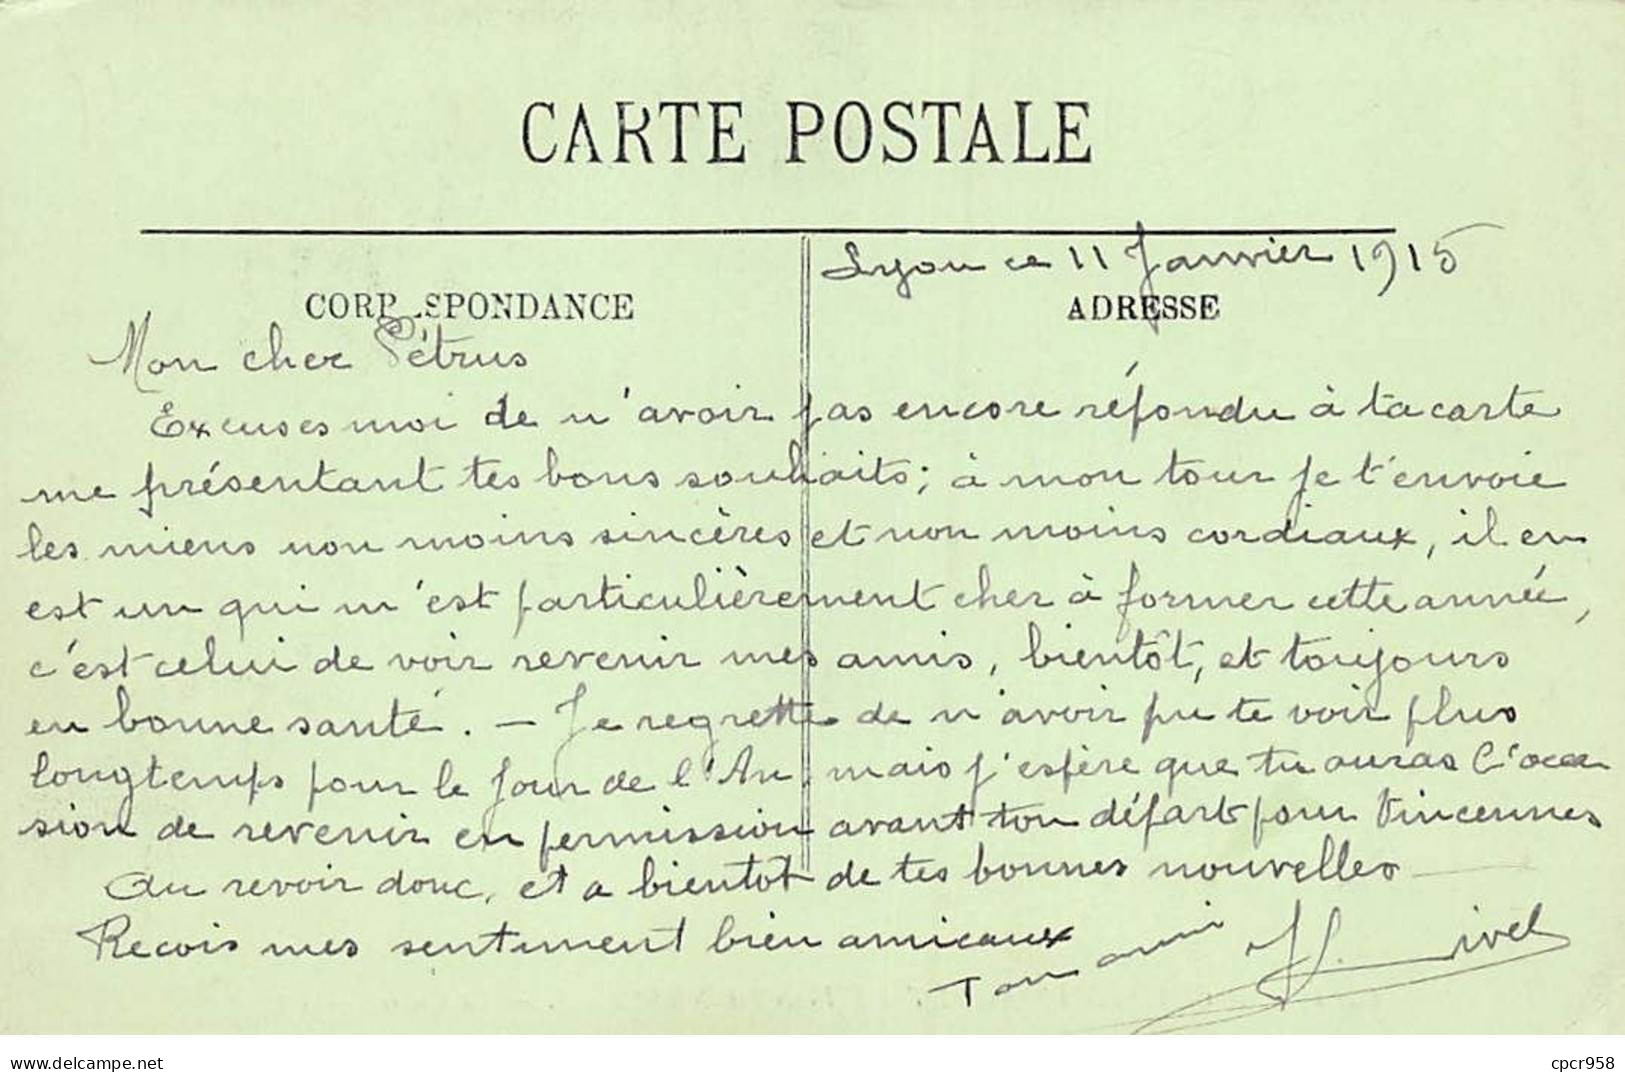 CARTE POSTALE
Lyon ce 11 Janvier 1915
CORRESPONDANCE
ADRESSE
Mon cher Pétrus
Excuses moi de n'avoir pas encore répondu à ta carte
me présentant tes bons souhaits; à mon tour je t'envoie
les miens non moins sincères et non moins cordiaux, il en
est un qui m'est particulièrement cher à former cette année,
c'est celui de voir revenir mes amis, bientôt, et toujours
en bonne santé. — Je regrette de n'avoir pu te voir plus
longtemps pour le Jour de l'An, mais j'espère que tu auras l'occa
sion de revenir en permission avant ton départ pour Vincennes
Au revoir donc, et a bientot de tes bonnes nouvelles
Recois mes sentiment bien amicaux
Ton ami
delcampe.net
cpcr958